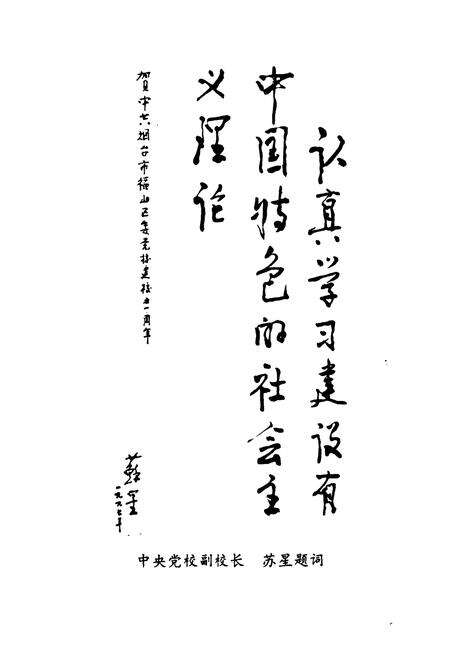 认真学习建设有
中国特色的社会主
义理论
贺中共烟台市福山区委党校建校一周年
蘇星
中央党校副校长 苏星题词